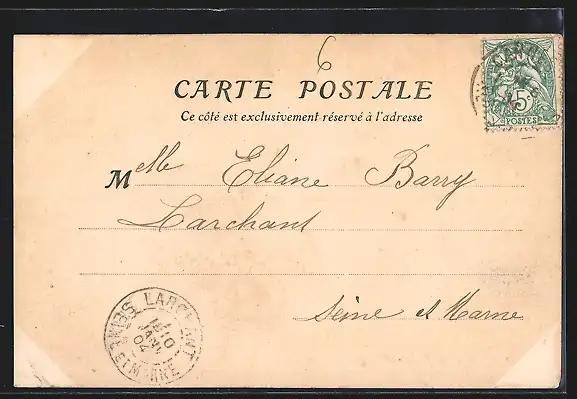 6
CARTE POSTALE
Ce côté est exclusivement réservé à l'adresse
Melle Eliane Barry
Larchant
Seine et Marne
5c
POSTES
LARCHANT
10
JANV
04
SEINE ET MARNE